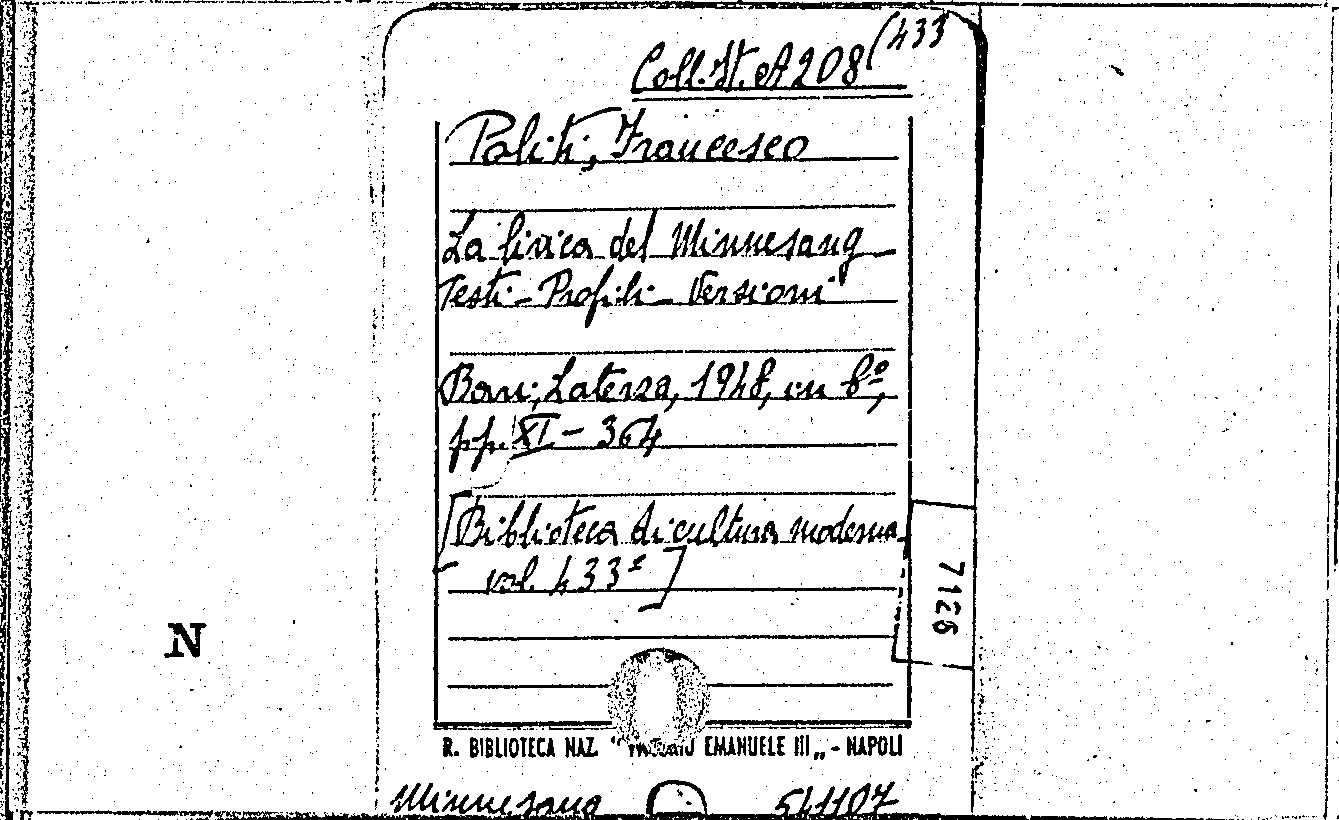 Coll. It. A 208 (433
Politi, Francesco
La lirica del Minnesang
Testi - Profili - Versioni
Bari, Laterza, 1948, in 8º,
pp. XI - 364
[Biblioteca di cultura moderna
vol. 433º]
7126
N
R. BIBLIOTECA NAZ. "VITTORIO EMANUELE III„ - NAPOLI
Minnesang 541107